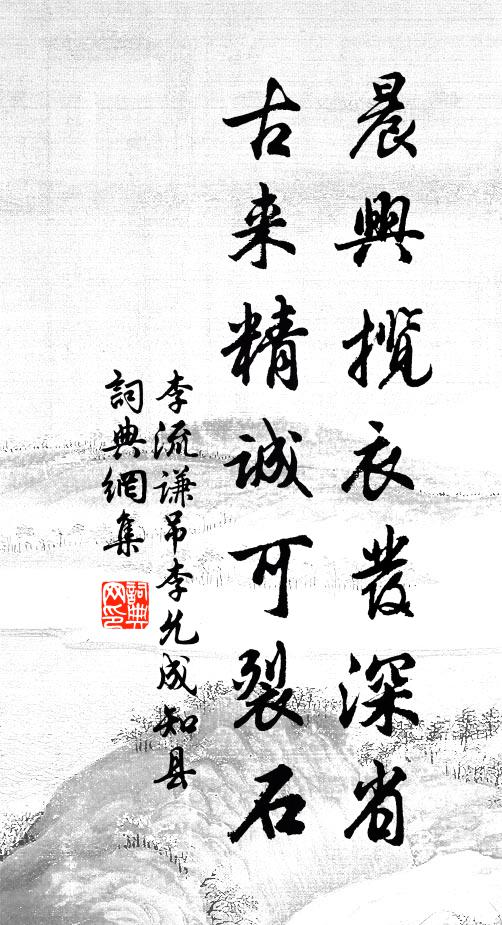 晨興揽衣發深省
古来精誠可裂石
李流谦吊李允成知县
詞典網集
詞典网印